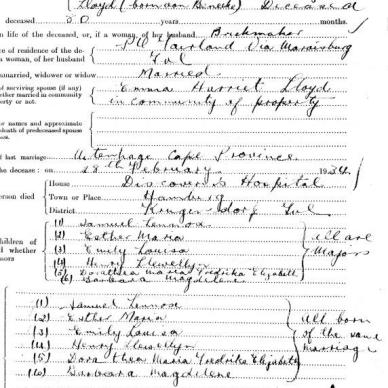 Lloyd (born von Benecke) Deceased
deceased 50 years months.
n life of the deceased, or, if a woman, of her husband Brickmaker
ce of residence of the de-
a woman, of her husband
P.O. Fairland Via Maraisburg
Tvl
unmarried, widower or widow Married
of surviving spouse (if any)
ether married in community
perty or not.
Emma Harriet Lloyd
in community of property
e names and approximate
death of predeceased spouse
f last marriage Uitenhage Cape Province
the decease: on 18th February 1934
House Discoverers Hospital
erson died Town or Place Hamberg
District Krugersdorp Tvl
children of
d whether
nors
(1) Samuel Lennose
(2) Esther Maria
(3) Emily Louisa
(4) Henry Llewellyn
(5) Dorathea Maria Fredrika Elizabeth
(6) Barbara Magdilene
all are
Majors
(1) Samuel Lennose
(2) Esther Maria
(3) Emily Louisa
(4) Henry Llewellyn
(5) Dora thea Maria Fredrika Elizabeth
(6) Barbara Magdilene
All born
of the same
marriage